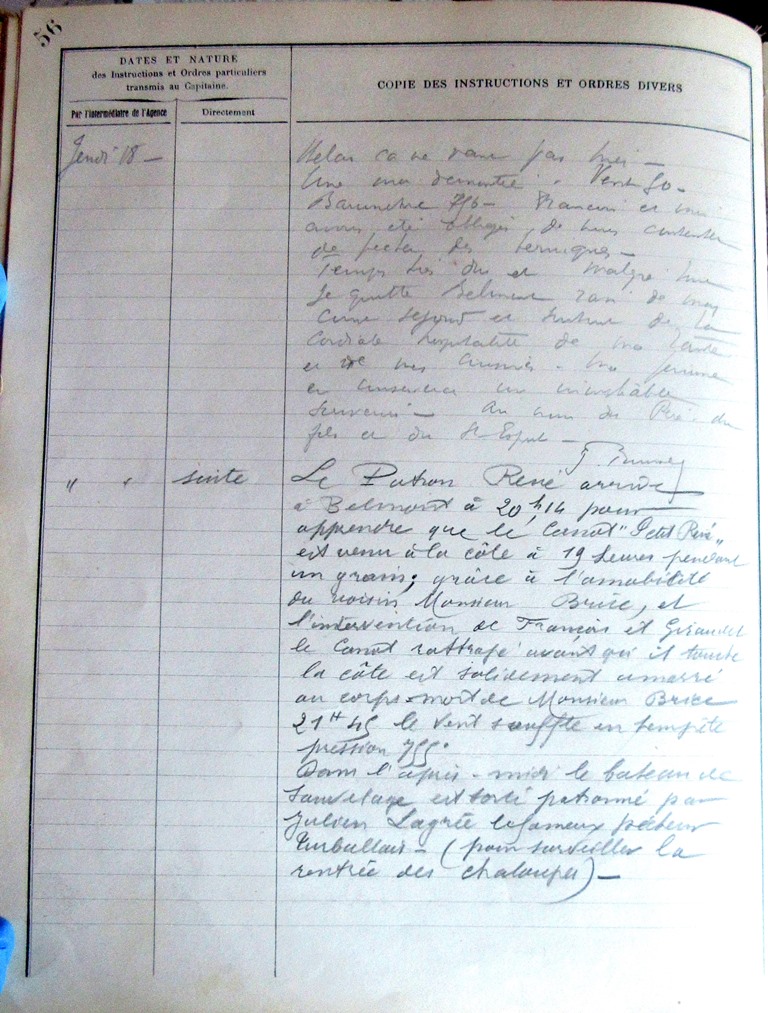 56
DATES ET NATURE
des Instructions et Ordres particuliers
transmis au Capitaine.
COPIE DES INSTRUCTIONS ET ORDRES DIVERS
Par l'Intermédiaire de l'Agence
Directement
Jeudi 18 —
Helas ca ne dure pas
Une mer demontée . Vent SO -
Barometre François et moi
avons été obligés de nous contenter
de des berniques —
Temps très dur et malgré
Je quitte Belmont de mon
sejour et surtout de la
Cordiale hospitalité de ma tante
et de mes cousines - Ma femme
en conservera un
Souvenir — Au nom du Père du
fils et du St Esprit —
" " suite
Le Patron René arrive
à Belmont à 20h14 pour
apprendre que le Canot "Petit René"
est venu à la côte à 19 heures pendant
un grain; grâce à l'amabilité
du voisin Monsieur Brice, et
l'intervention de François et Giraudet
le Canot rattrapé avant qu'il touche
la côte est solidement amarré
au corps-mort de Monsieur Brice
21H45 le vent souffle en tempête
pression 755.
Dans l'après-midi le bateau de
Sauvetage est sorti patronné par
Julien Lagrée le fameux pêcheur
Turballais - (pour surveiller la
rentrée des chaloupes) —